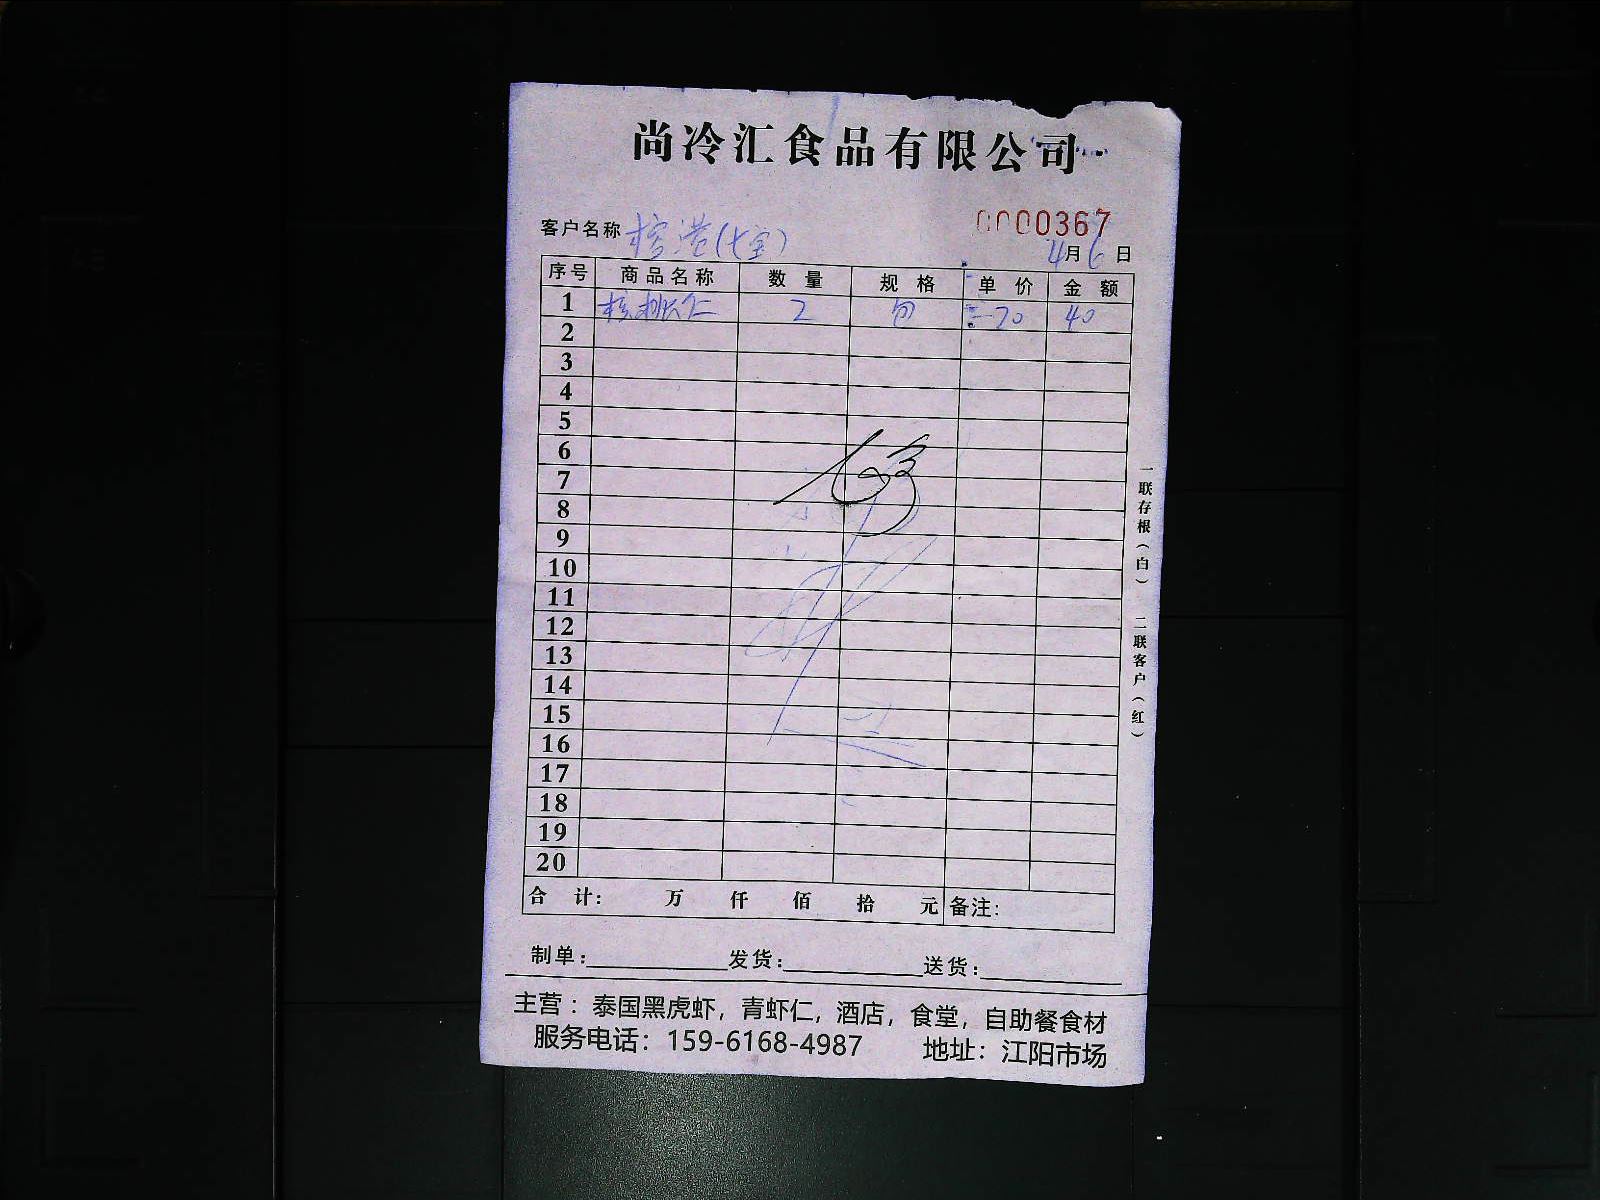 尚冷汇食品有限公司
0000367
客户名称 榕港(七宝) 4月6日
序号 商品名称 数量 规格 单价 金额
1 核桃仁 2 包 20 40
2
3
4
5
6
7
8
9
10
11
12
13
14
15
16
17
18
19
20
合计: 万 仟 佰 拾 元 备注:
制单: 发货: 送货:
一联存根(白) 二联客户(红)
主营：泰国黑虎虾，青虾仁，酒店，食堂，自助餐食材
服务电话：159-6168-4987 地址：江阳市场